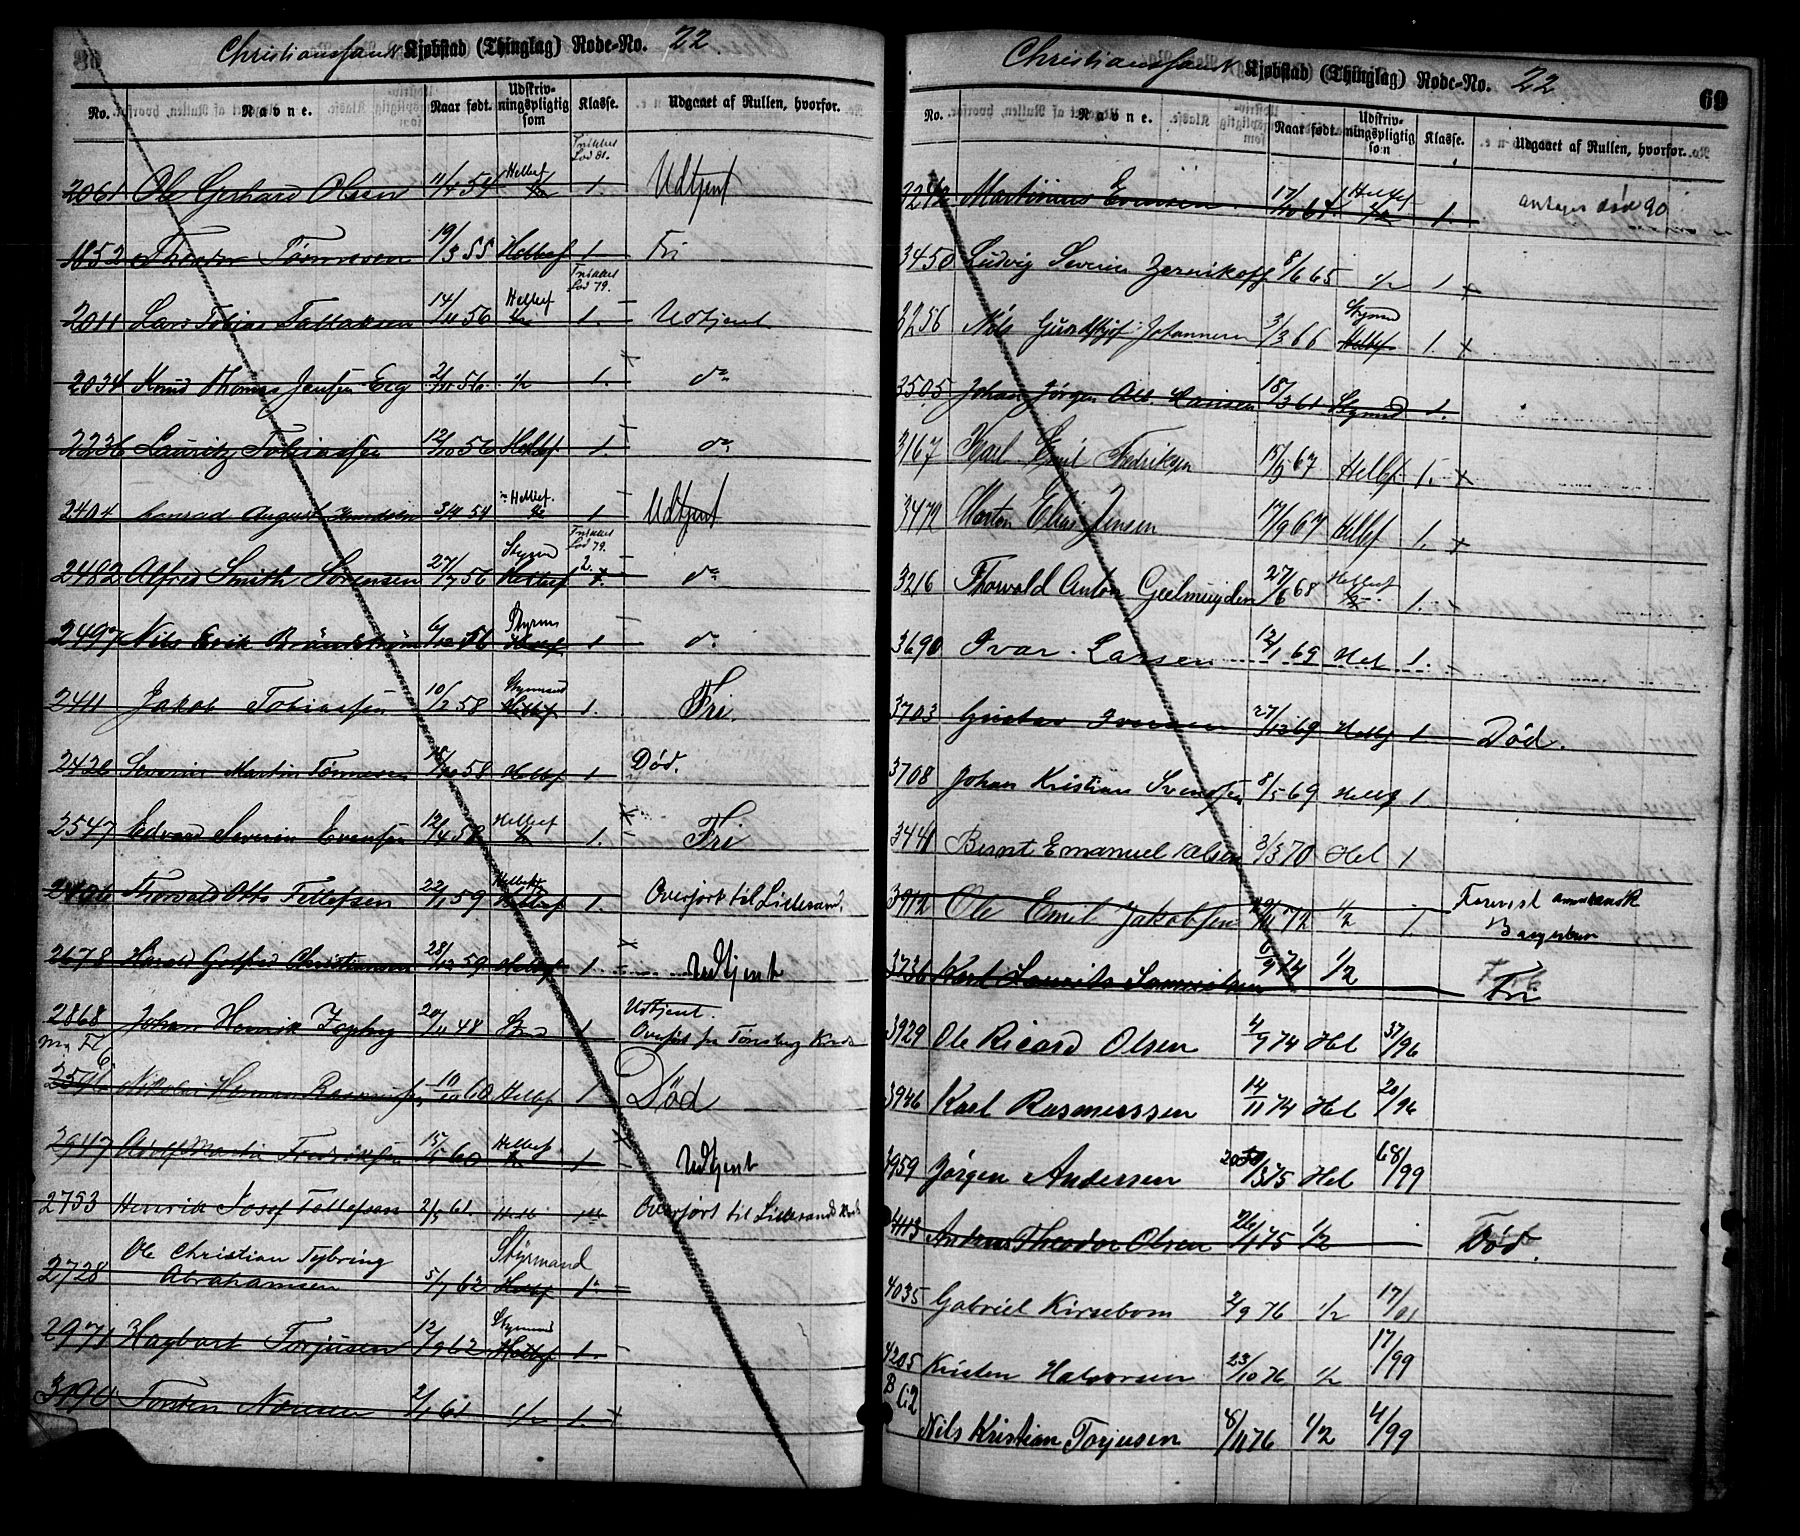 Christianssands Kjøbstad (Thinglag) Rode-No. 22
No. Navne. Naar født. Udskriv-ningspligtig som Klasse. Udgaaet af Rullen, hvorfor.
Frikhet Lod 81.
2061 Ole Gerhard Olsen 11/4 54 Helbef 1/2 1. Udtjent
1852 Theodor Tönnesen 19/3 55 Helbef 1 Fri
Frikhet Lod 79.
2011 Lars Tobias Tallaksen 14/11 56 Helbef 1/2 1. Udtjent
2034 Knud Thomas Jensen Eeg 2/10 56 1/2 1. do
2236 Lauritz Tobiassen 12/10 56 Helbf 1. do
2404 Conrad August Knudsen 3/4 54 Helbef. 1/2 1 Udtjent
Frikhet Lod 79.
2482 Alfred Smith Sörensen 27/7 56 Styrm Helbef 2. 1. do
2497 Nils Erik Brändström 6/12 56 Styrm Helbf 1 do
2411 Jakob Tobiassen 10/2 58 Styrmand Helbef 1. Fri.
2426 Severin Martin Tönnesen 18/10 58 Helbef 1 Död.
2547 Edvard Severin Evensen 12/4 58 Helbef 1/2 1. Fri
2406 Thorvald Otto Tellefsen 22/1 59 Helbef 1. Overført til Lillesand.
2678 Harald Gotfred Christiansen 28/12 59 Helbf 1. Udtjent
2868 Johan Henrik Ingberg 20/11 48 1 Udtjent. Overført fra Tönsberg Kreds
2596 Nikolai Herman Rasmussen 10/10 60 Helbf 1 Död
2947 Adolf Martin Fredriksen 15/5 60 Helbef 1/2 1 Udtjent
2753 Henrik Josef Tellefsen 2/5 61. Helb Overført til Lillesands Kreds
Ole Christian Tybring Styrmand
2728 Abrahamsen 5/1 62 Helbf 1.
2971 Hagbart Torjusen 12/9 62 Styrmand Helbf 1.
3190 Torsten Nömen 2/1 61 1/2 1. +
Christianssands Kjøbstad (Thinglag) Rode-No. 22
69
No. Navne. Naar født. Udskriv-ningspligtig som Klasse. Udgaaet af Rullen, hvorfor.
Martinius Evensen 17/10 64 Helbef 1/2 1. antages død 90
3450 Ludvig Severin Zernikoff 8/6 65 1/2 1 +
3256 Nils Gundstjof Johannesen 3/3 66 Styrmd Helbf 1. +
3505 Johan Jörgen Alb. Hansen 18/3 61 Styrmd 1.
3167 Karl Emil Fredriksen 15/5 67 Helbf 1. +
3472 Morten Elias Jensen 17/9 67 Helbf 1. +
3216 Thorvald Anton Geelmuyden 27/6 68 Helbef 1/2 1.
3690 Ivar Larsen 12/1 69 Hel 1.
3703 Gustav Iversen 27/12 69 Helbf 1 Død.
3708 Johan Kristian Svendsen 8/5 69 Helbf 1
3441 Bernt Emanuel Olsen 3/3 70 Hel 1
3912 Ole Emil Jakobsen 29/11 72 1/2 1. Forevist amerikansk Borgerbrev
3736 Karl Laurits Samuelsen 6/9 74 1/2 Fri
3929 Ole Ricard Olsen 4/9 74 Hel 37/96
3946 Karl Rasmussen 14/11 74 Hel 20/96
3959 Jørgen Andersen 20/3 75 Hel 68/99
4113 Andreas Theodor Olsen 26/1 75 1/2 Død.
4035 Gabriel Kirsebom 2/9 76 1/2 17/01
4205 Kristen Halvorsen 23/10 76 1/2 17/99
B 62
Nils Kristian Torjusen 8/11 76 1/2 4/99